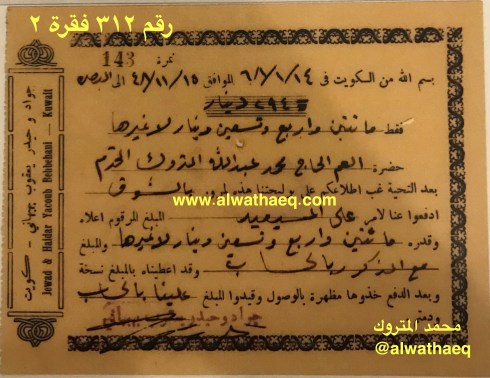 رقم ٣١٢ فقرة ٢
نمرة 143
بسم الله من الكويت في ٦/١/١٤ الموافق ٤٨/١١/١٥ الى
٢٩٤ دينار
فقط مائتين واربع وتسعين دينار لاغيرها
حضرة العم الحاج محمد عبدالله المتروك المحترم
بعد التحية غب اطلاعكم على بوليجتنا هذه بالسوق
www.alwathaeq.com
ادفعوا عنا لامر على المبلغ المرقوم اعلاه
وقدره مائتين واربع وتسعين دينار لاغيرها والمبلغ
بالحساب وقد اعطيناه بالمبلغ نسخة
وبعد الدفع خذوها مظهرة بالوصول وقيدوا المبلغ علينا بالحساب
ودمتم
جواد وحيدر
جواد و حيدر يعقوب بهبهاني - كويت
Jewad & Haidar Yacoob Behbehani — Kuwait
محمد المتروك
@alwathaeq